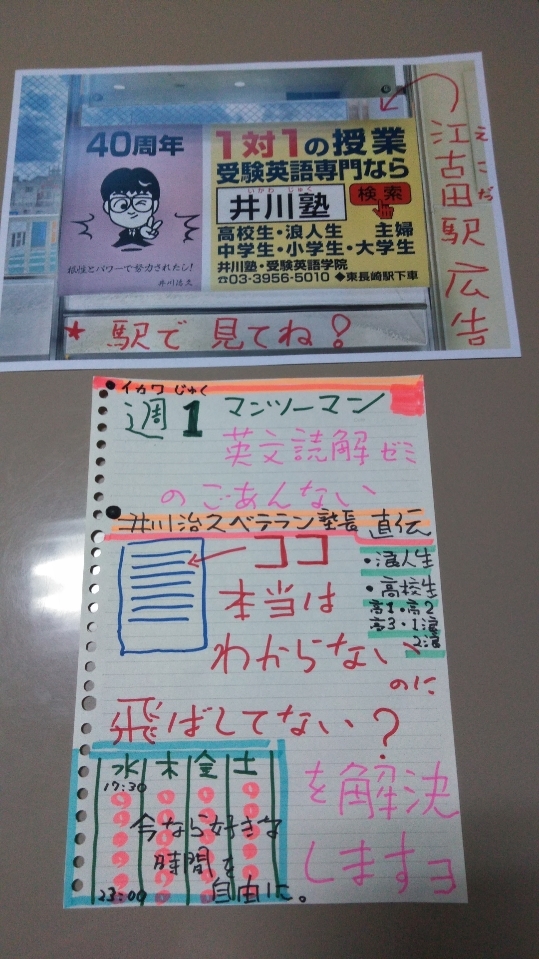 40周年
1対1の授業
受験英語専門なら
いかわ じゅく
井川塾
検索
高校生・浪人生 主婦
中学生・小学生・大学生
井川塾・受験英語学院
☎03-3956-5010 ◆東長崎駅下車
根性とパワーで努力されたし!
井川治久
えこだ
江古田駅広告
★駅で見てね!
イカワじゅく
週1 マンツーマン
英文読解ゼミ
のごあんない
井川治久ベテラン塾長 直伝
ココ
本当は
わからない
のに
飛ばしてない?
・浪人生
・高校生
高1・高2
高3・1浪
2浪
を解決
しますヨ
水 木 金 土
17:30
今なら好きな
時間を
自由に。
23:00